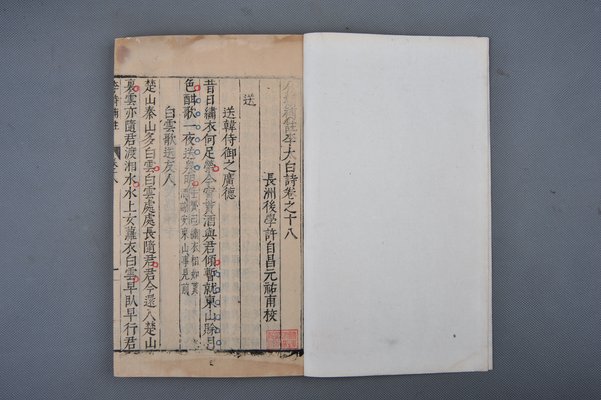 李太白詩卷之十八
長洲後學許自昌元祐甫校
送
送韓侍御之廣德
昔日繡衣何足榮今宵貰酒與君傾暫就東山賒月
色酣歌一夜送泉明
白雲歌送友人
楚山秦山多白雲白雲處處長隨君君今還入楚山
裏雲亦隨君渡湘水水上女蘿衣白雲早臥早行君